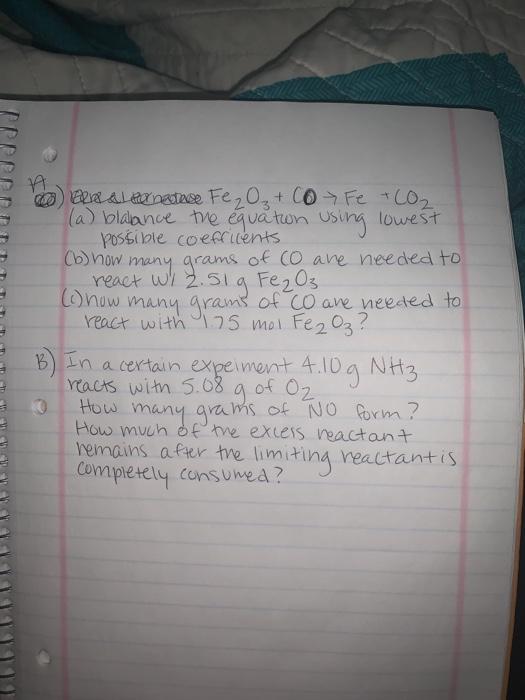 A) Fe2O3 + CO → Fe + CO2
(a) blalance the equation using lowest
possible coefficents
(b) how many grams of CO are needed to
react w/ 2.51 g Fe2O3
(c) how many grams of CO are needed to
react with 1.75 mol Fe2O3?
B) In a certain expeiment 4.10 g NH3
reacts with 5.08 g of O2
How many grams of NO form?
How much of the excess reactant
remains after the limiting reactant is
completely consumed?